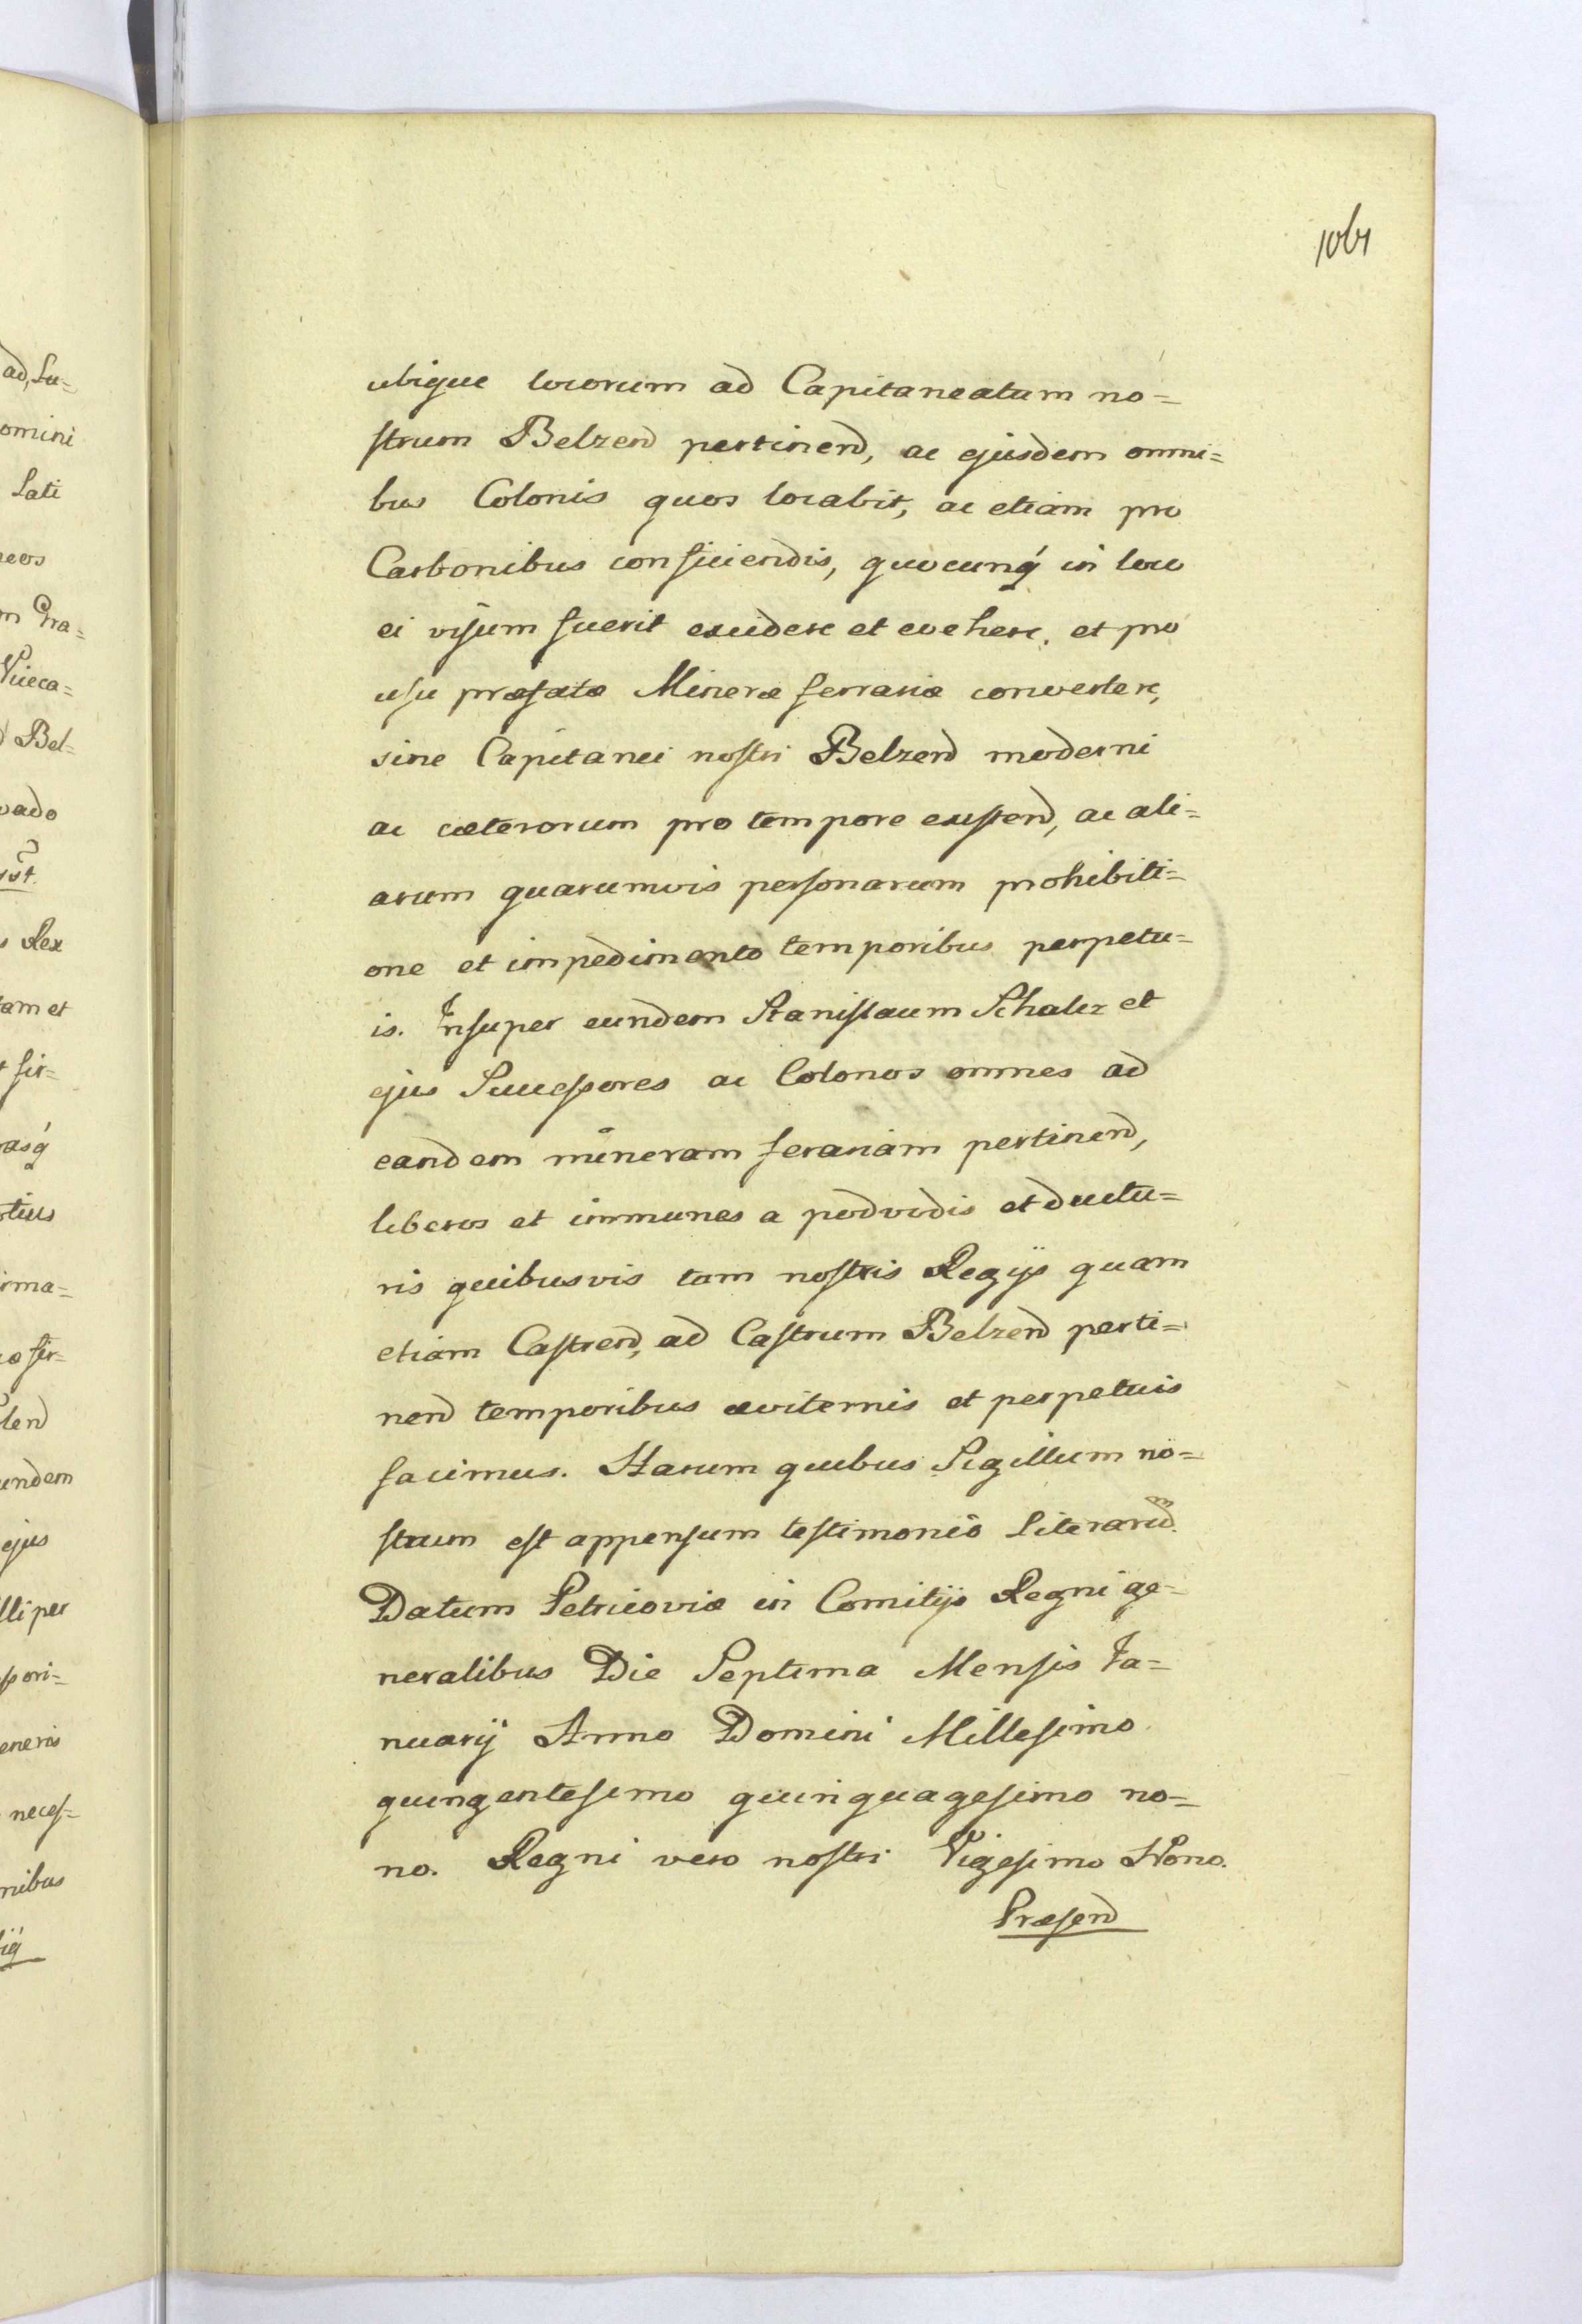 1061
ubique locorum ad Capitaneatum no=
strum Belzend pertinend, ac ejusdem omni=
bus Colonis quos locabit, ac etiam pro
Carbonibus conficiendis, quocunq́ in loco
ei visum fuerit excidere et evehere, et pro
usu præfatæ Mineræ ferrariæ convertere,
sine Capitanei nostri Belzend moderni
ac cæterorum pro tempore existend, ac ali=
arum quarumvis personarum prohibiti=
one et impedimento temporibus perpetu=
is. Insuper eundem Stanislaum Schalcz et
ejus Successores ac Colonos omnes ad
eandem mineram ferariam pertinend,
liberos et immunes a podvodis et ductu=
ris quibusvis tam nostris Regijs quam
etiam Castrend, ad Castrum Belzend perti=
nend temporibus æviternis et perpetuis
facimus. Harum quibus Sigillum no=
strum est appensum testimonio Literarum.
Datum Petricoviæ in Comitijs Regni ge=
neralibus Die Septima Mensis Ja=
nuarij Anno Domini Millesimo
quingentesimo quinquagesimo no=
no. Regni vero nostri Vigesimo Nono.
Præsend
ad, Lu=
omini
Lati
neos
m Gra=
Viceca=
Bel=
vado
s Rex
tam et
fir=
rasq́
irma=
lend
undem
ejus
lli per
eneris
necess=
nibus